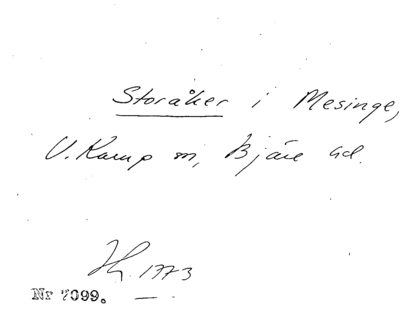 Storåker i Mesinge,
V. Karup sn, Bjäre hd.
1773
Nr 7099.